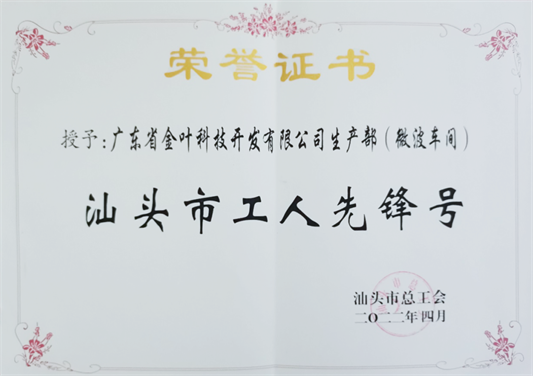 荣誉证书
授予:广东省金叶科技开发有限公司生产部(微波车间)
汕头市工人先锋号
汕头市总工会
二〇二二年四月